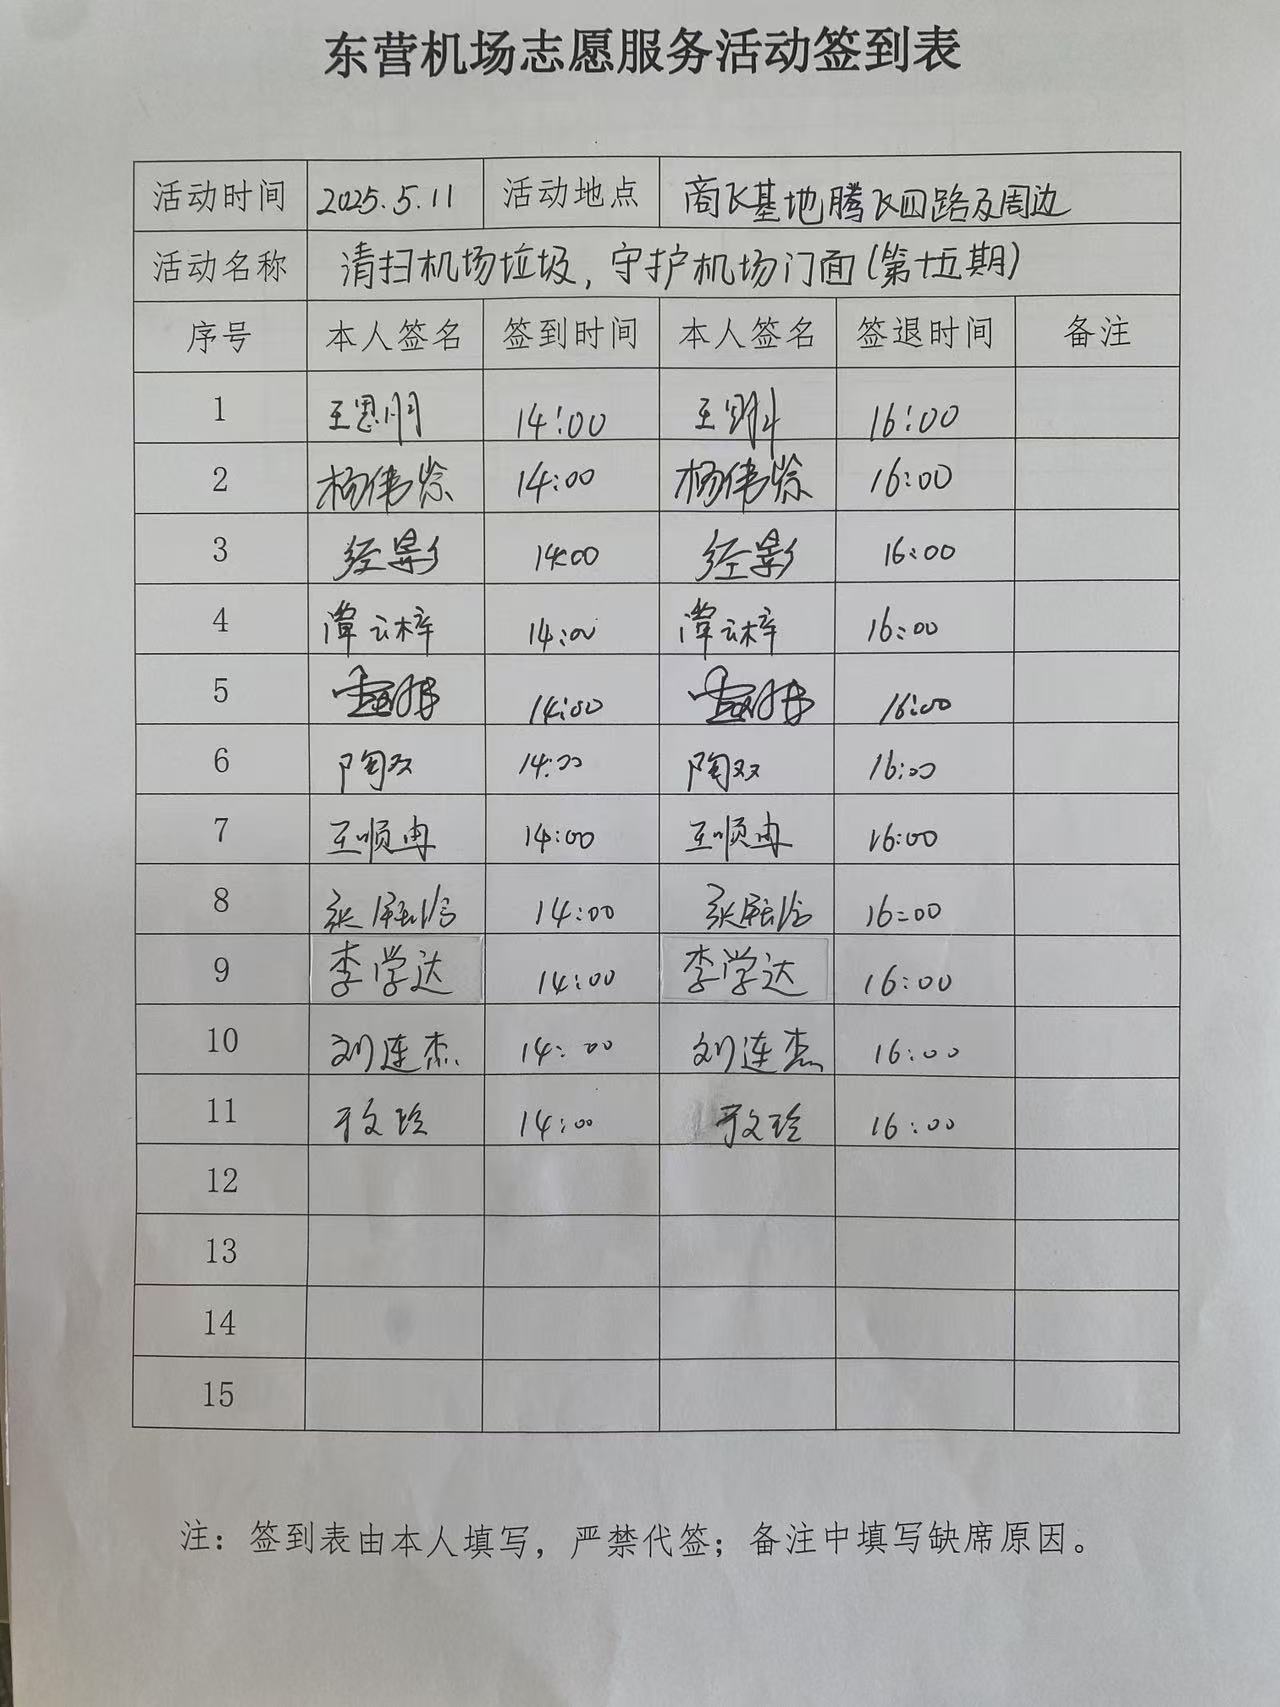 东营机场志愿服务活动签到表
活动时间 2025.5.11 活动地点 商飞基地腾飞四路及周边
活动名称 清扫机场垃圾，守护机场门面(第十五期)
序号 本人签名 签到时间 本人签名 签退时间 备注
1 王思明 14:00 王思明 16:00
2 杨伟 14:00 杨伟 16:00
3 经影 14:00 经影 16:00
4 覃云梓 14:00 覃云梓 16:00
5 14:00 16:00
6 陶双 14:00 陶双 16:00
7 王顺冉 14:00 王顺冉 16:00
8 张 14:00 张 16:00
9 李学达 14:00 李学达 16:00
10 刘连杰 14:00 刘连杰 16:00
11 于文玲 14:00 于文玲 16:00
12
13
14
15
注：签到表由本人填写，严禁代签；备注中填写缺席原因。